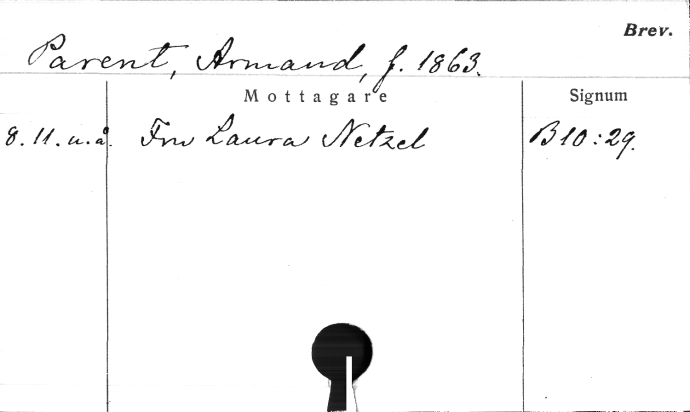 Brev.
Parent, Armand, f. 1863.
Mottagare Signum
8. 11. u.å. Fru Laura Netzel B10:29.